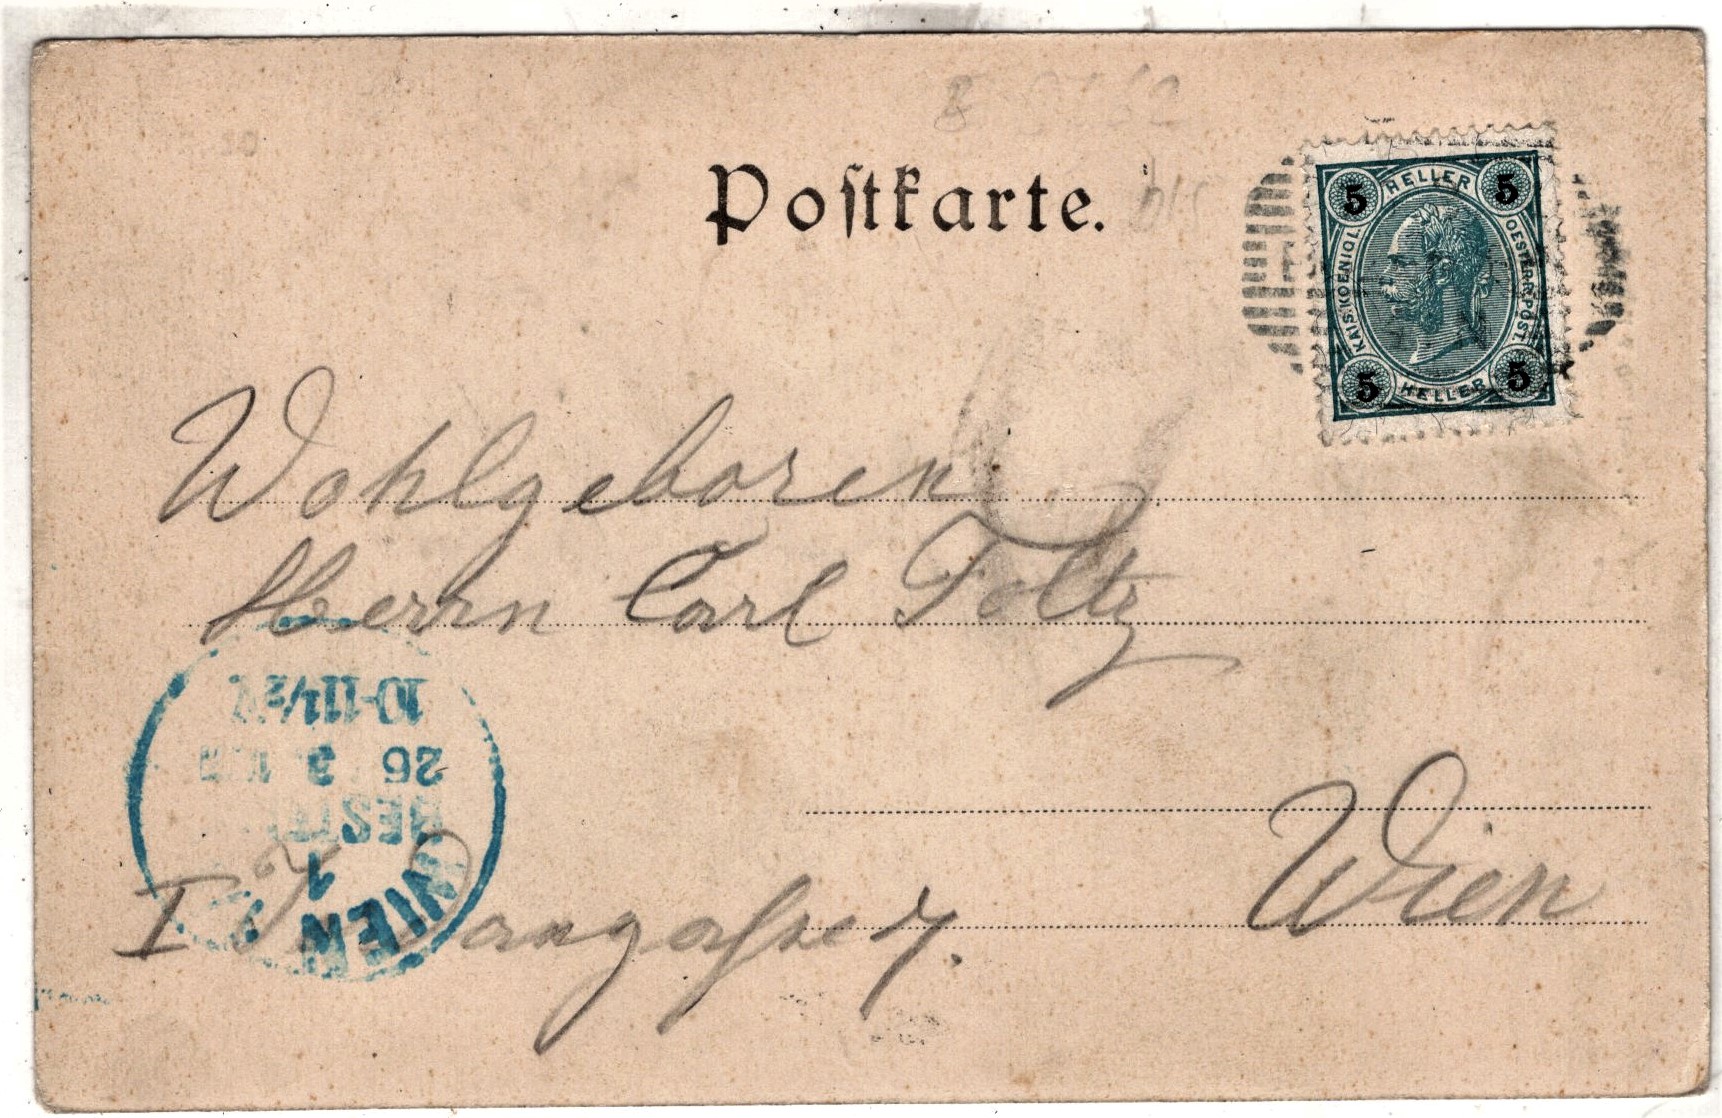 Postkarte.
5 HELLER 5
KAIS. KOENIGL. OESTERR. POST
5 HELLER 5
Wohlgeboren
Herrn Carl Foltz
Wien
I
7.
WIEN 1
BESTE
26 3
10-11½V